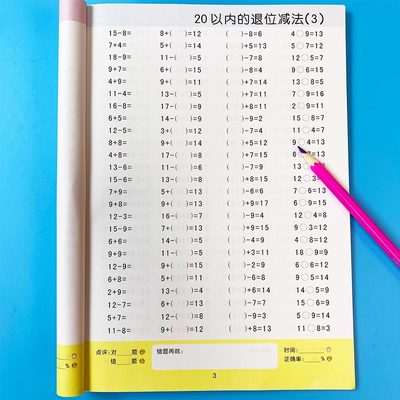 20以内的退位减法(3)
15-8= 8+( )=12 ( )-8=6 4○9=13
7+4= 5+( )=14 ( )+5=13 5○7=12
18-9= 11-( )=5 ( )-7=8 12○5=7
5+8= 6+( )=11 ( )+7=14 6○7=13
4+9= 11-( )=8 ( )+7=11 7○9=16
11-4= 13-( )=5 ( )+8=16 2○9=11
16-8= 17-( )=9 ( )+8=11 8○6=14
6+5= 14-( )=9 ( )-9=2 15○8=7
12-5= 3+( )=12 ( )-7=4 11○4=7
8+8= 9+( )=14 ( )+5=12 9○4=13
4+8= 17-( )=8 ( )+7=15 6 =13
13-6= 11-( )=8 ( )-7=9 13○
15-6= 13-( )=8 ( )+8=13 12○3=
7+9= 5+( )=13 ( )-6=6 7○6=13
9+8= 9+( )=13 ( )+9=17 6○9=15
12-3= 16-( )=7 ( )-9=4 12○4=8
15-9= 13-( )=4 ( )+6=15 4○8=12
6+6= 14-( )=5 ( )-4=9 3○8=11
9+9= 11-( )=4 ( )+4=13 18○9=9
12-9= 13-( )=6 ( )-2=9 6○6=12
6+5= 12-( )=5 ( )-6=8 9○5=14
2+9= 9+( )=13 ( )+6=14 14○5=9
12-7= 6+( )=13 ( )-7=7 15○6=9
5+7= 12-( )=8 ( )-9=3 9○6=15
11-8= 9+( )=12 ( )+8=13 11○8=3
点评:对____题 错题再做: 时间:____
错____题 正确率:____%
3